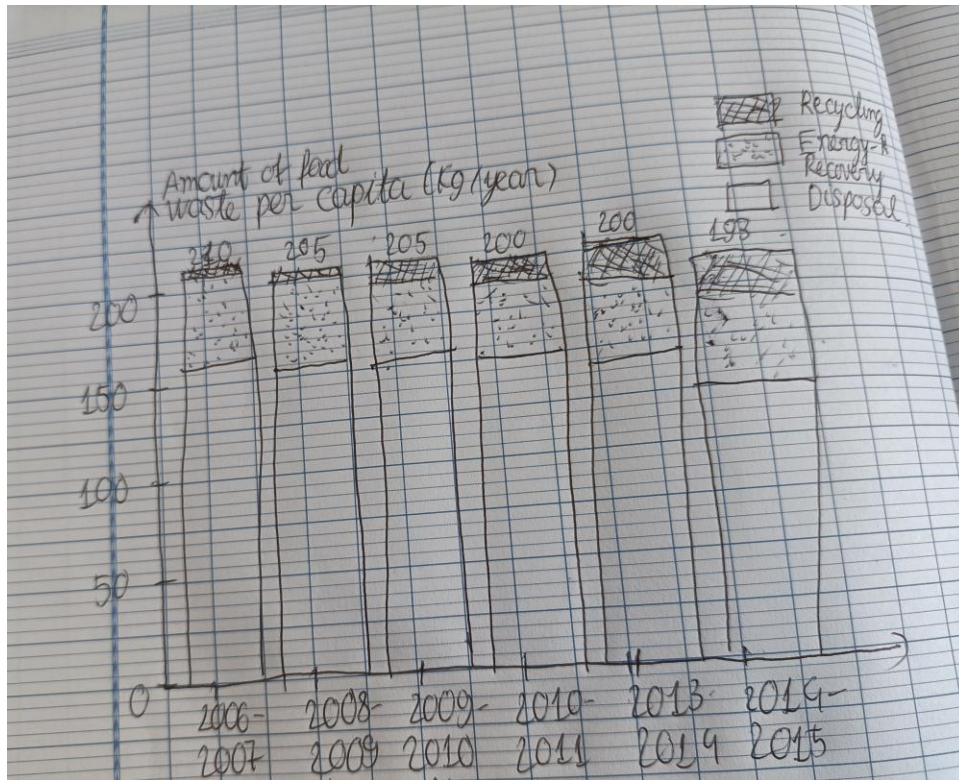 Recycling
Energy-R
Recovery
Disposal
Amount of food
waste per capita (Kg/year)
210 205 205 200 200 198
200
150
100
50
0
2006- 2008- 2009- 2010- 2013- 2014-
2007 2009 2010 2011 2014 2015